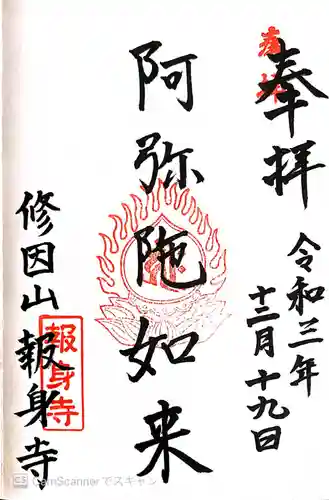 奉拝
令和三年
十二月十九日
阿弥陀如来
修因山 報身寺
報身寺
CS CamScannerでスキャン